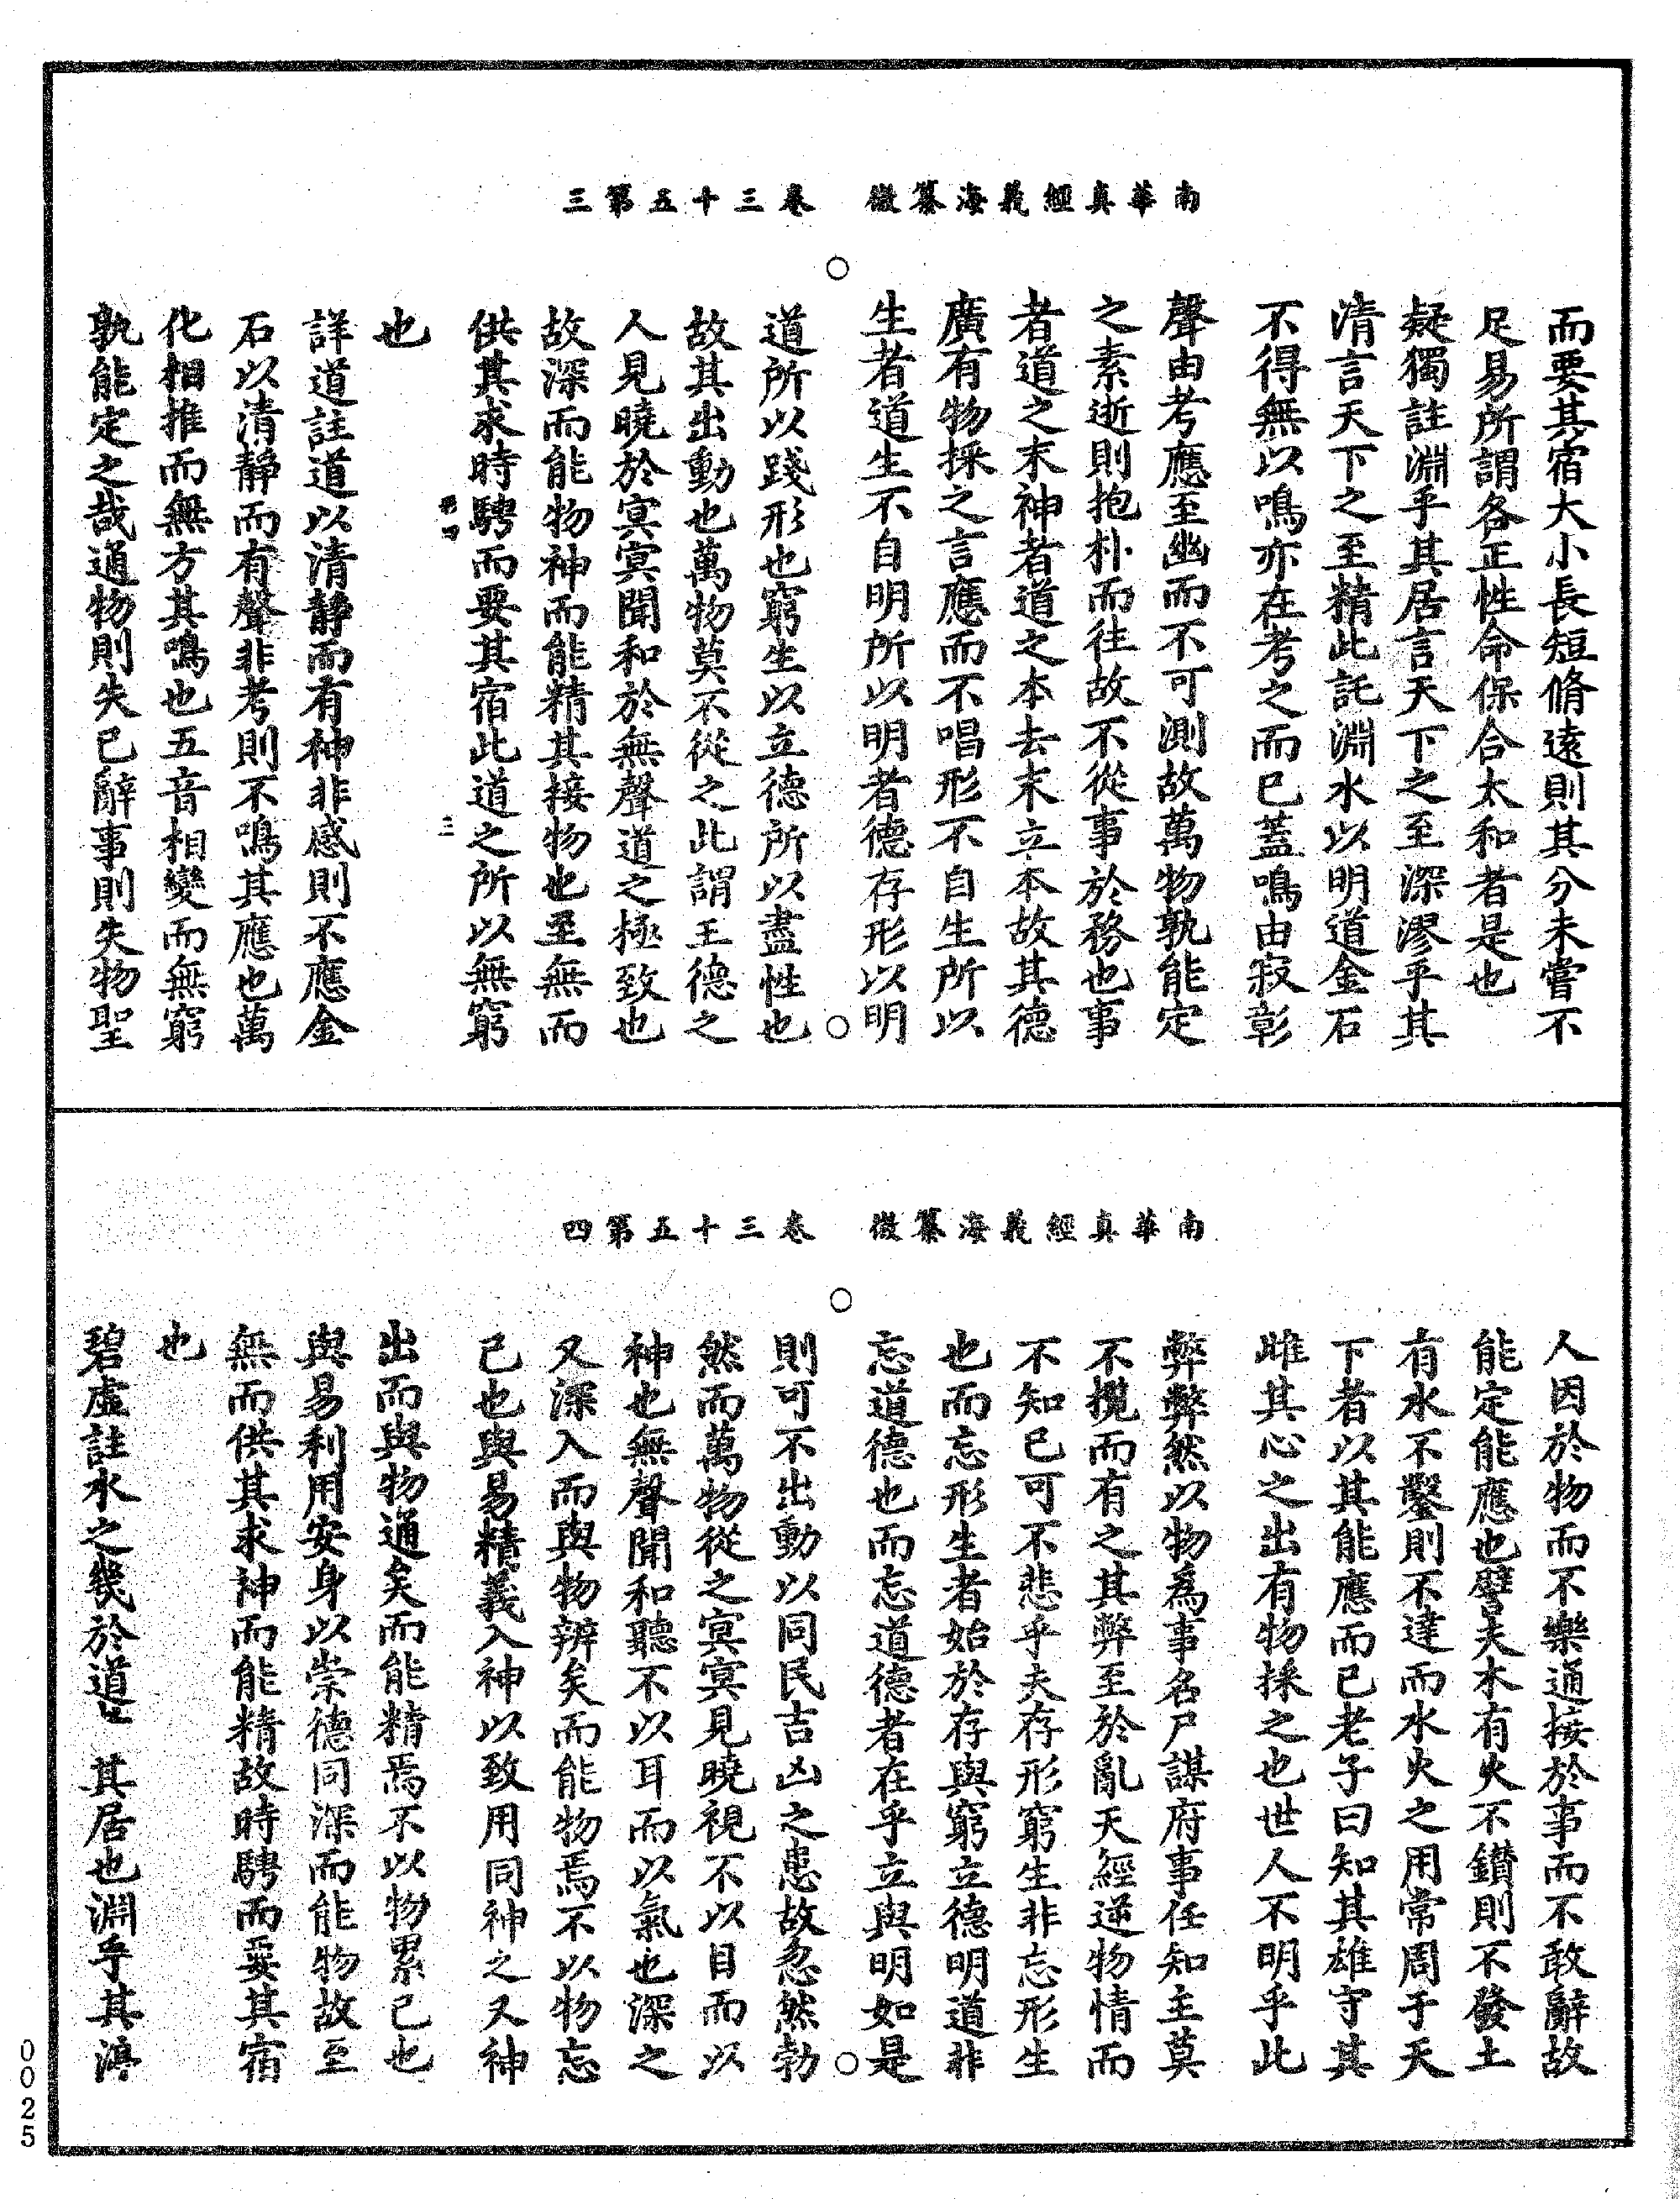 南華真經義海纂微　卷三十五第三
而要其宿大小長短脩遠則其分未嘗不
足易所謂各正性命保合太和者是也
疑獨註淵乎其居言天下之至深漻乎其
清言天下之至精此託淵水以明道金石
不得無以鳴亦在考之而已蓋鳴由寂彰
聲由考應至幽而不可測故萬物孰能定
之素逝則抱朴而往故不從事於務也事
者道之末神者道之本去末立本故其德
廣有物採之言應而不唱形不自生所以
生者道生不自明所以明者德存形以明
道所以踐形也窮生以立德所以盡性也
故其出動也萬物莫不從之此謂王德之
人見曉於冥冥聞和於無聲道之極致也
故深而能物神而能精其接物也至無而
供其求時騁而要其宿此道之所以無窮
也
詳道註道以清靜而有神非感則不應金
石以清靜而有聲非考則不鳴其應也萬
化相推而無方其鳴也五音相變而無窮
孰能定之哉通物則失已辭事則失物聖
南華真經義海纂微　卷三十五第四
人因於物而不樂通接於事而不敢辭故
能定能應也譬夫木有火不鑽則不發土
有水不鑿則不達而水火之用常周于天
下者以其能應而已老子曰知其雄守其
雌其心之出有物採之也世人不明乎此
弊弊然以物為事名尸謀府事任知主莫
不攬而有之其弊至於亂天經逆物情而
不知已可不悲乎夫存形窮生非忘形生
也而忘形生者始於存與窮立德明道非
忘道德也而忘道德者在乎立與明如是
則可不出動以同民吉凶之患故忽然勃
然而萬物從之冥冥見曉視不以目而以
神也無聲聞和聽不以耳而以氣也深之
又深入而與物辨矣而能物焉不以物忘
己也與易精義入神以致用同神之又神
出而與物通矣而能精焉不以物累己也
與易利用安身以崇德同深而能物故至
無而供其求神而能精故時騁而要其宿
也
碧虛註水之幾於道也其居也淵乎其渟
0025